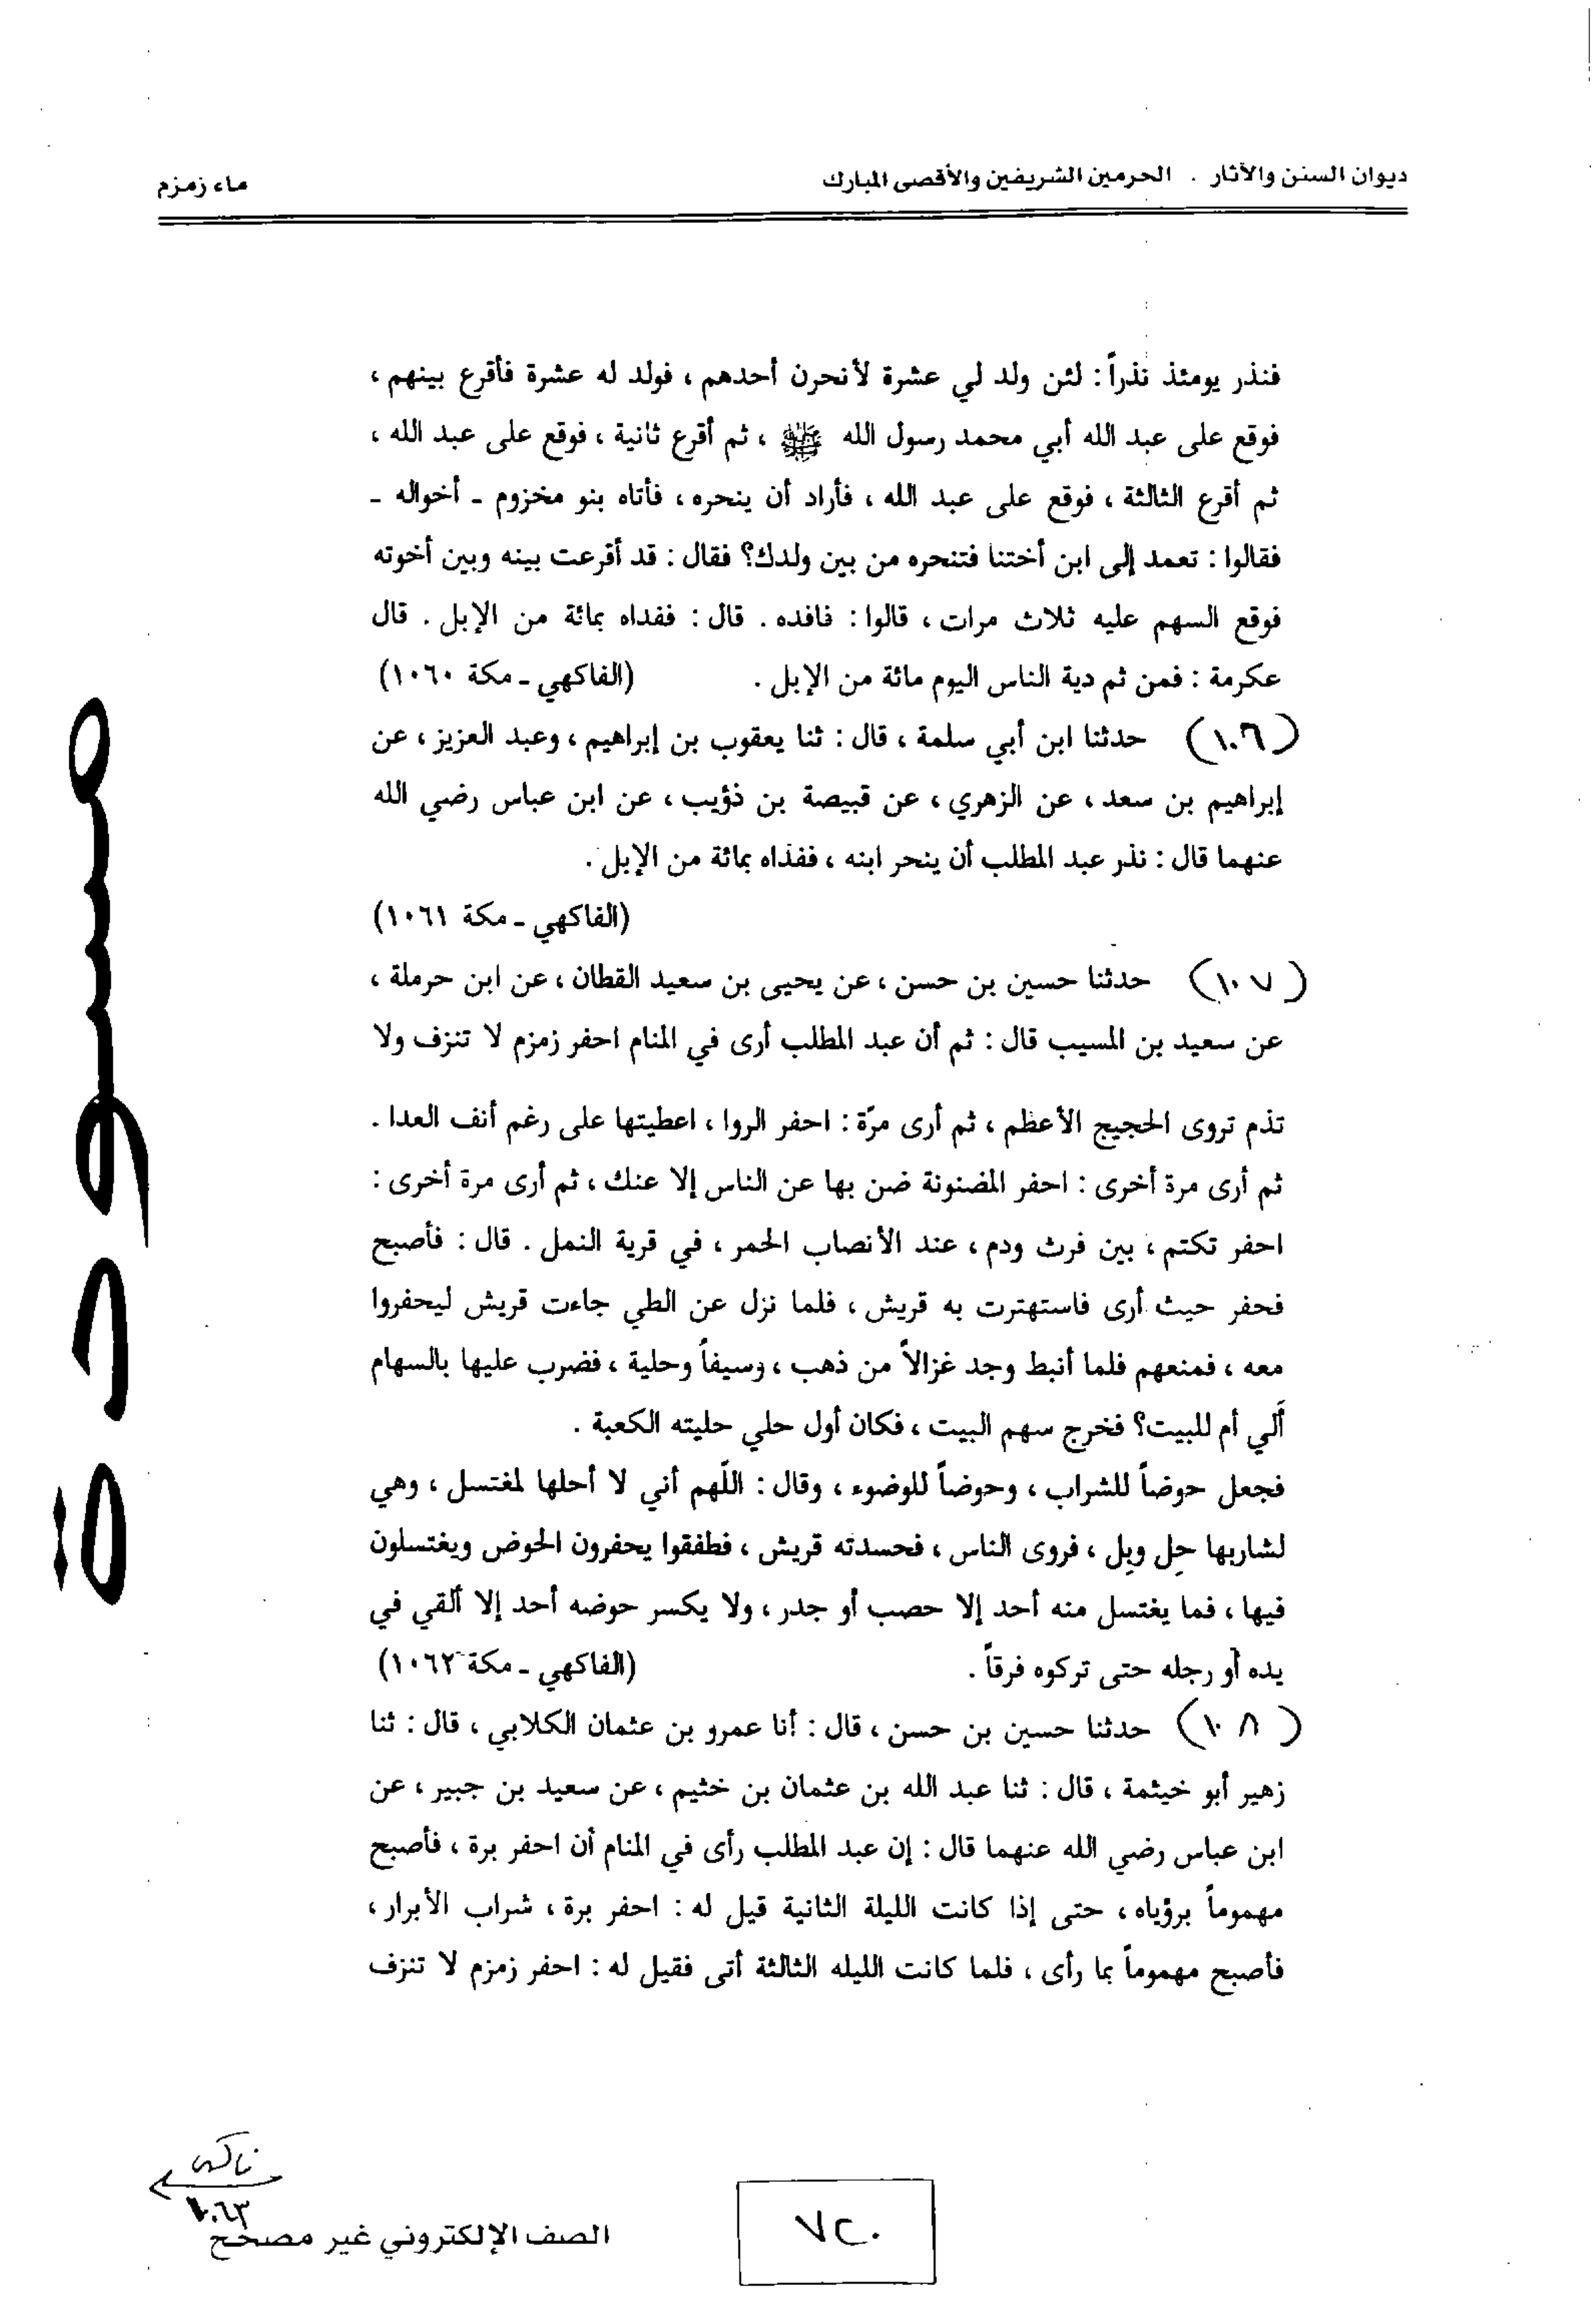 ديوان السنن والآثار . الحرمين الشريفين والأقصى المبارك
ماء زمزم
فنذر يومئذ نذراً : لئن ولد لي عشرة لأنحرن أحدهم ، فولد له عشرة فأقرع بينهم ،
فوقع على عبد الله أبي محمد رسول الله ﷺ ، ثم أقرع ثانية ، فوقع على عبد الله ،
ثم أقرع الثالثة ، فوقع على عبد الله ، فأراد أن ينحره ، فأتاه بنو مخزوم ـ أخواله ـ
فقالوا : تعمد إلى ابن أختنا فتنحره من بين ولدك؟ فقال : قد أقرعت بينه وبين أخوته
فوقع السهم عليه ثلاث مرات ، قالوا : فافده . قال : ففداه بمائة من الإبل . قال
عكرمة : فمن ثم دية الناس اليوم مائة من الإبل . (الفاكهي ـ مكة ١٠٦٠)
(١٠٦) حدثنا ابن أبي سلمة ، قال : ثنا يعقوب بن إبراهيم ، وعبد العزيز ، عن
إبراهيم بن سعد ، عن الزهري ، عن قبيصة بن ذؤيب ، عن ابن عباس رضي الله
عنهما قال : نذر عبد المطلب أن ينحر ابنه ، ففذاه بمائة من الإبل .
(الفاكهي ـ مكة ١٠٦١)
(١٠٧) حدثنا حسين بن حسن ، عن يحيى بن سعيد القطان ، عن ابن حرملة ،
عن سعيد بن المسيب قال : ثم أن عبد المطلب أرى في المنام احفر زمزم لا تنزف ولا
تذم تروى الحجيج الأعظم ، ثم أرى مرّة : احفر الروا ، اعطيتها على رغم أنف العدا .
ثم أرى مرة أخرى : احفر المضنونة ضن بها عن الناس إلا عنك ، ثم أرى مرة أخرى :
احفر تكتم ، بين فرث ودم ، عند الأنصاب الحمر ، في قرية النمل . قال : فأصبح
فحفر حيث أرى فاستهترت به قريش ، فلما نزل عن الطي جاءت قريش ليحفروا
معه ، فمنعهم فلما أنبط وجد غزالاً من ذهب ، وسيفاً وحلية ، فضرب عليها بالسهام
أَلي أم للبيت؟ فخرج سهم البيت ، فكان أول حلي حليته الكعبة .
فجعل حوضاً للشراب ، وحوضاً للوضوء ، وقال : اللّهم أني لا أحلها لمغتسل ، وهي
لشاربها حِل وبِل ، فروى الناس ، فحسدته قريش ، فطفقوا يحفرون الحوض ويغتسلون
فيها ، فما يغتسل منه أحد إلا حصب أو جدر ، ولا يكسر حوضه أحد إلا ألقي في
يده أو رجله حتى تركوه فرقاً . (الفاكهي ـ مكة ١٠٦٢)
(١٠٨) حدثنا حسين بن حسن ، قال : أنا عمرو بن عثمان الكلابي ، قال : ثنا
زهير أبو خيثمة ، قال : ثنا عبد الله بن عثمان بن خثيم ، عن سعيد بن جبير ، عن
ابن عباس رضي الله عنهما قال : إن عبد المطلب رأى في المنام أن احفر برة ، فأصبح
مهموماً برؤياه ، حتى إذا كانت الليلة الثانية قيل له : احفر برة ، شراب الأبرار ،
فأصبح مهموماً بما رأى ، فلما كانت الليله الثالثة أتى فقيل له : احفر زمزم لا تنزف
فاكهي
١٠٦٣
الصف الإلكتروني غير مصحح
٧٢٠
مسودة